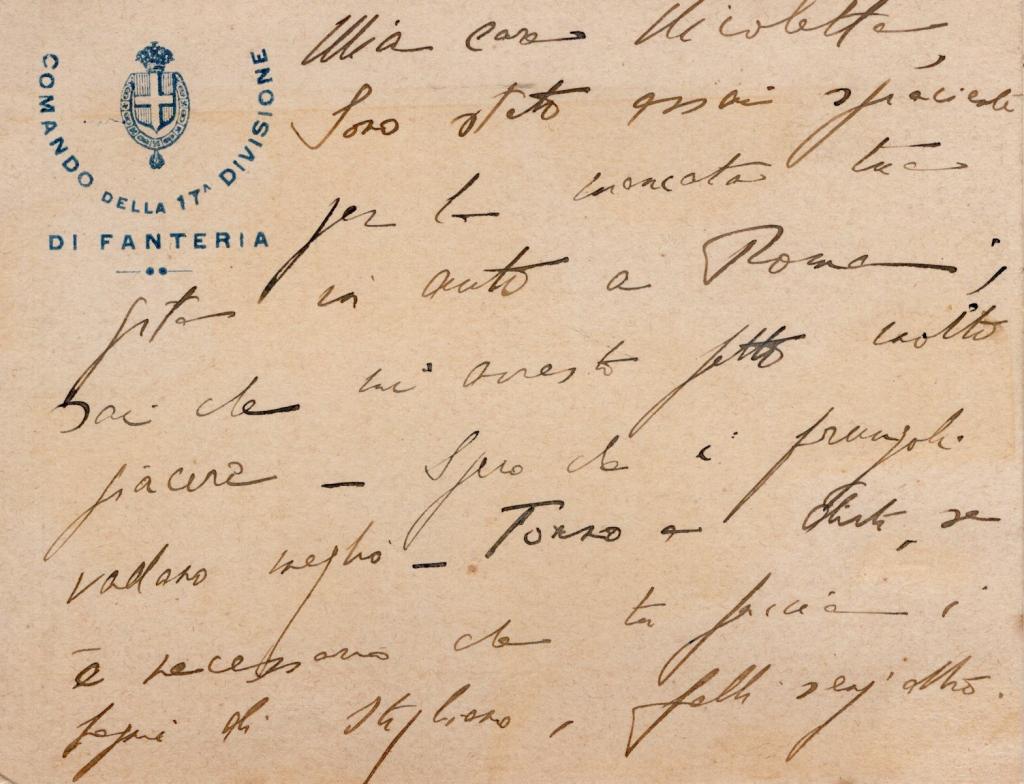 COMANDO DELLA 17ª DIVISIONE
DI FANTERIA
Mia cara Nicoletta,
Sono stato assai spiacente
per la mancata tua
gita in auto a Roma;
sai che mi avresti fatto molto
piacere – Spero che i
vadano meglio – Torno a se
è necessario che tu faccia i
di Stigliano, falli senz'altro.